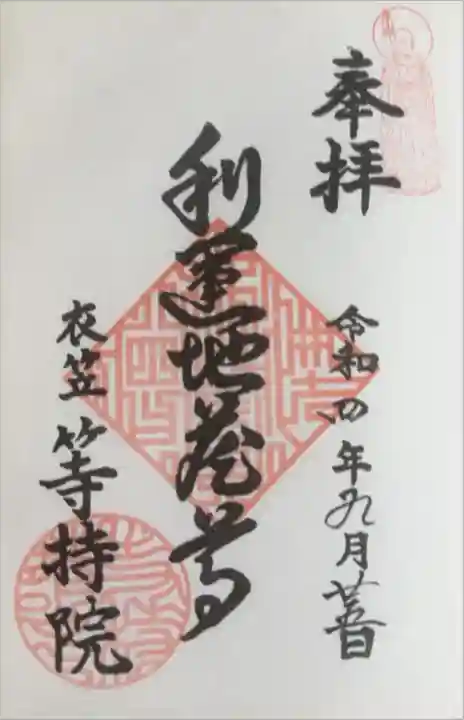 奉拝
令和四年九月廿五日
利運地蔵尊
衣笠 等持院